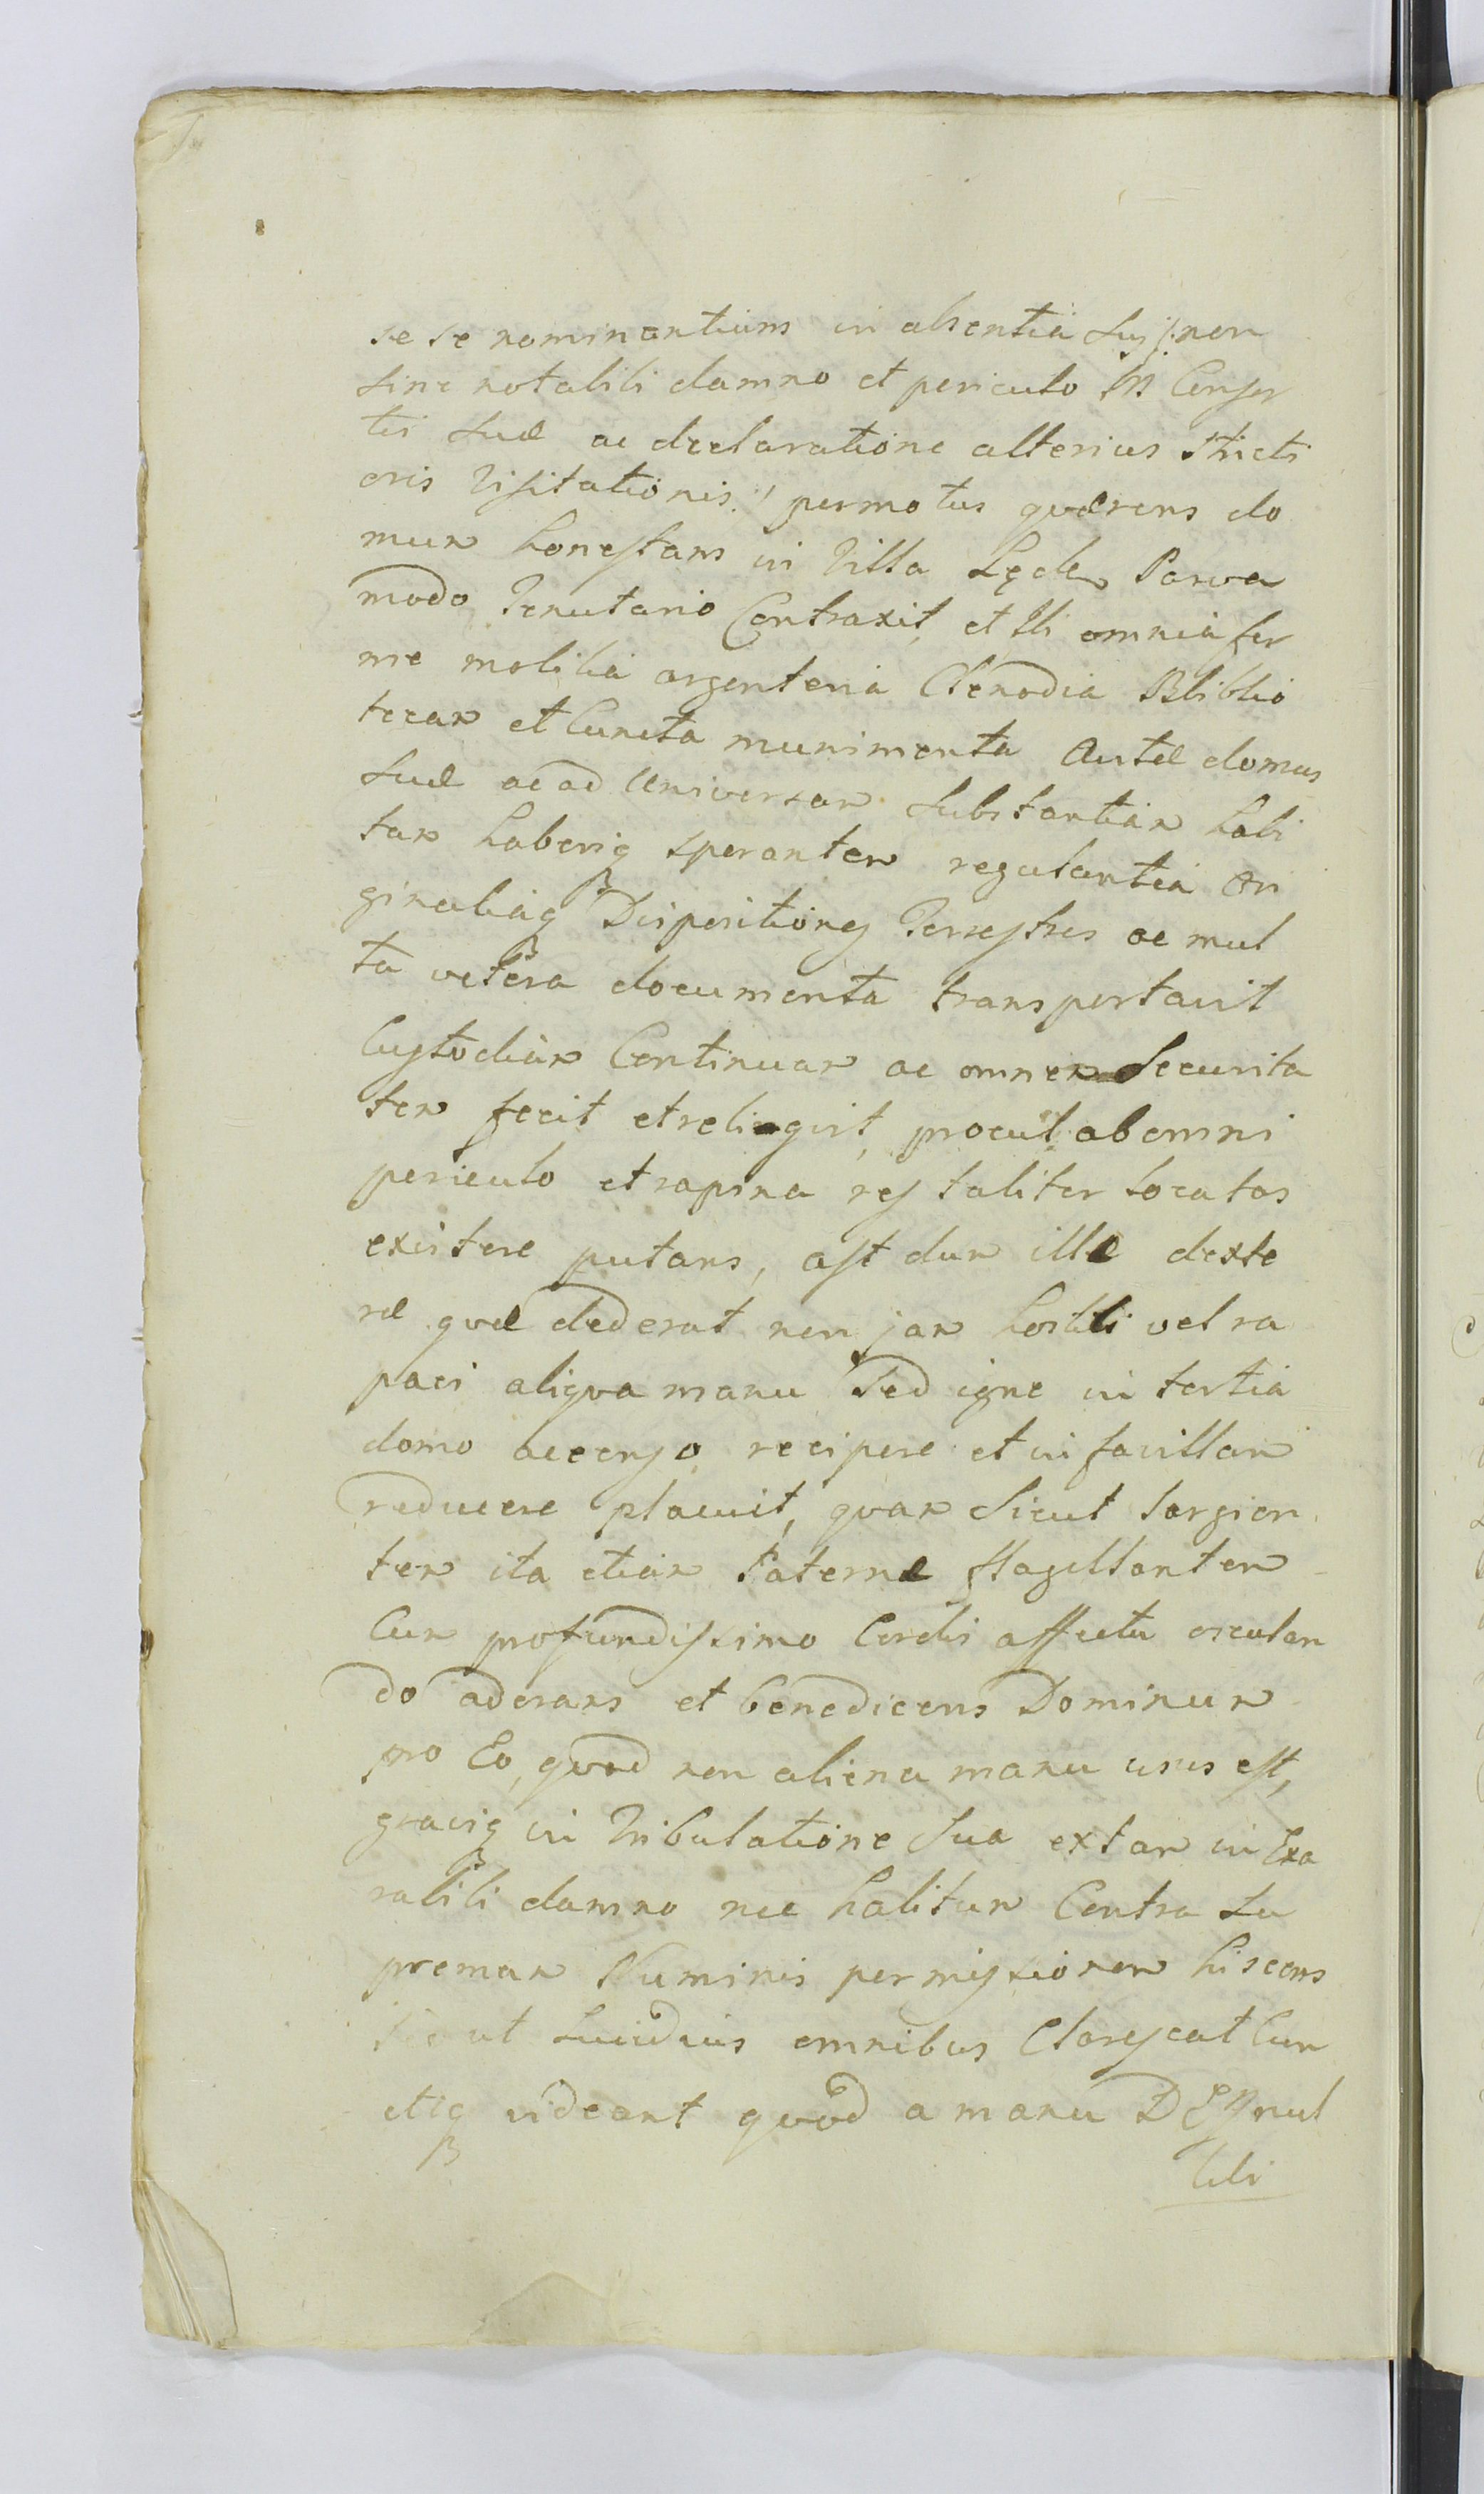 se se nominantium in absentia sui /: non
sine notabili damno et periculo M Consor
tis suæ ac declaratione alterius stricti
oris Visitationis :/ permotus qværens do
mum honestam in Villa Lęden Parva
modo Tenutario Contraxit, et Illi omnia fer
me mobilia argenteria Clenodia Bliblio
tecam et Cuncta munimenta Avitæ domus
suæ ac ad Universam substantiam habi
tam haberiq sperantem regulantia Ori
ginaliaq Dispositiones Terrestres ac mul
ta vetera documenta transportavit
Custodiam Continuam ac omnem Securita
tem fecit et reliqvit, procul ab omni
periculo et rapina res taliter locatas
existere putans, ast dum illæ dexte
ræ qvæ dederat non jam hostili vel ra
paci aliqva manu sed igne in tertia
domo accenso recipere et in favillam
reducere placuit, qvam sicut largien
tem ita etiam Paterne flagellantem
Cum profundissimo Cordis affectu osculan
do adorans et benedicens Dominum
pro Eo, qvod non aliena manu usus est,
graviq in Tribulatione sua extans in Exa
rabili damno nec halitum Contra Su
premam Numinis permissionem hiscens
sic ut lucidius omnibus Clarescat Cun
ctiq videant qvod a manu DEI nul
libi